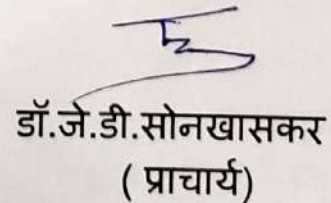 डॉ.जे.डी.सोनखासकर
( प्राचार्य)